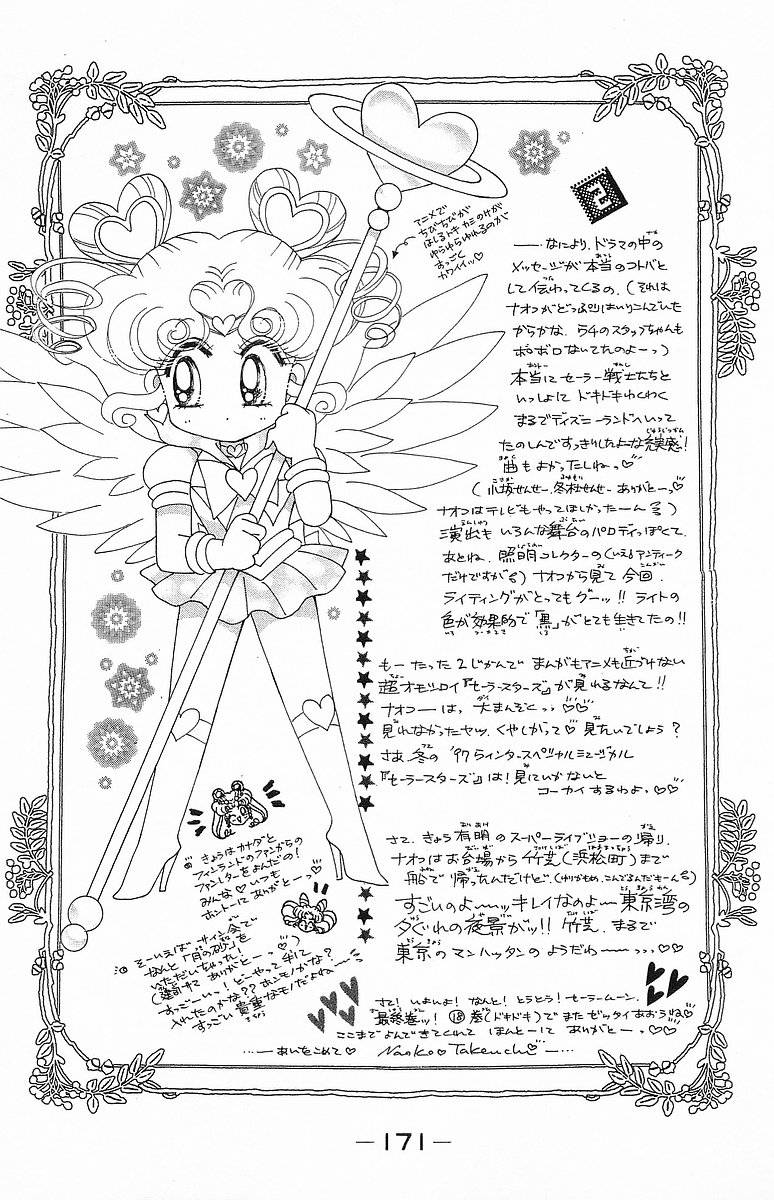 2
――なにより、ドラマの中の
メッセージが本当のコトバと
して伝わってくるの。(それは
ナオコがどっぷりはいりこんでいた
からかな、54のスタッフちゃんも
ボロボロないてたのよーっ)
本当にセーラー戦士たちと
いっしょに ドキドキわくわく
まるでディズニーランドへいって
たのしんですっきりしたよな充実感!
曲もよかったしねっ♡
(小坂せんせー、冬杜せんせー ありがとーっ♡
ナオコはテレビもやってほしかったーん)
演出も いろんな舞台のパロディっぽくて、
あとね、照明コレクターの(いえ アンティーク
だけですが)ナオコから見て 今回、
ライティングがとってもグーッ!! ライトの
色が効果的で「黒」がとても生きてたの!!
もーたった2じかんで まんがもアニメも近づけない
超オモシロイ『セーラースターズ』が見れるなんて!!
ナオコーは、大まんぞくっっ♡♡
見れなかったヤツ、くやしがって♡ 見たいでしょう?
さあ、冬の '97ウィンタースペシャルミュージカル
『セーラースターズ』は!見にいかないと
コーカイするわよ、♡♡
さて、きょう有明のスーパーライブショーの帰り、
ナオコはお台場から竹芝(浜松町)まで
船で帰ったんだけど、(ゆりかもめ、こんでるんだもーん)
すごいのよ〜〜ッッキレイなのよー 東京湾の
夕ぐれの夜景がッ!! 竹芝、まるで
東京のマンハッタンのようだわ〜〜っっっ♡♡
さて! いよいよ! なんと! とうとう! セーラームーン、
最終巻ッ! ⑱巻(ドキドキ)でまたゼッタイあおうね♡
ここまでよんできてくれて ほんとーにありがとーっ♡♡
…―あいをこめて♡ Naoko♡Takeuchi♡―…
アニメで
ちびちびが
はしるトキ カミのケが
ゆらゆらゆれるのが
すっごく
カワイイッ♡
きょうはカナダと
フィンランドのファンからの
ファンレターをよんだの!
みんな♡いつも
ホントーにありがとーっ♡
そーいえば サイン会で
なんと「月の砂」を
いただいちゃったし!
ありがとーっ♡)
すっごーいっ! どーやって手に
入れたのかな?? ホンモノかな?
すっごい貴重なモノだよね〜〜
―171―